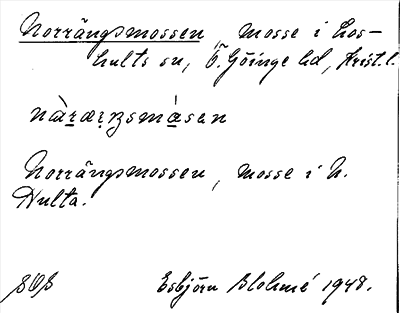 Norrängsmossen, mosse i Los-
hults sn, Ö. Göinge hd, Krist. l.
Norrängsmossen, mosse i N.
Hulta.
Esbjörn Blohmé 1948.